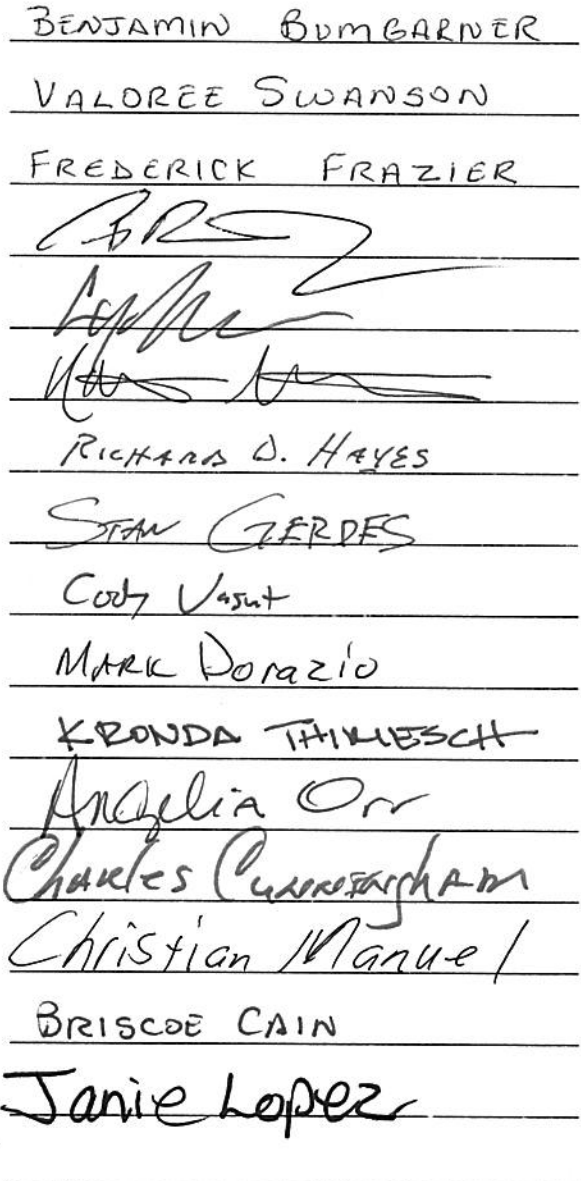 BENJAMIN BUMGARNER
VALOREE SWANSON
FREDERICK FRAZIER
RICHARD D. HAYES
STAN GERDES
Cody Vasut
MARK Dorazio
KRONDA THIMESCH
Angelia Orr
Charles Cunningham
Christian Manuel
BRISCOE CAIN
Janie Lopez